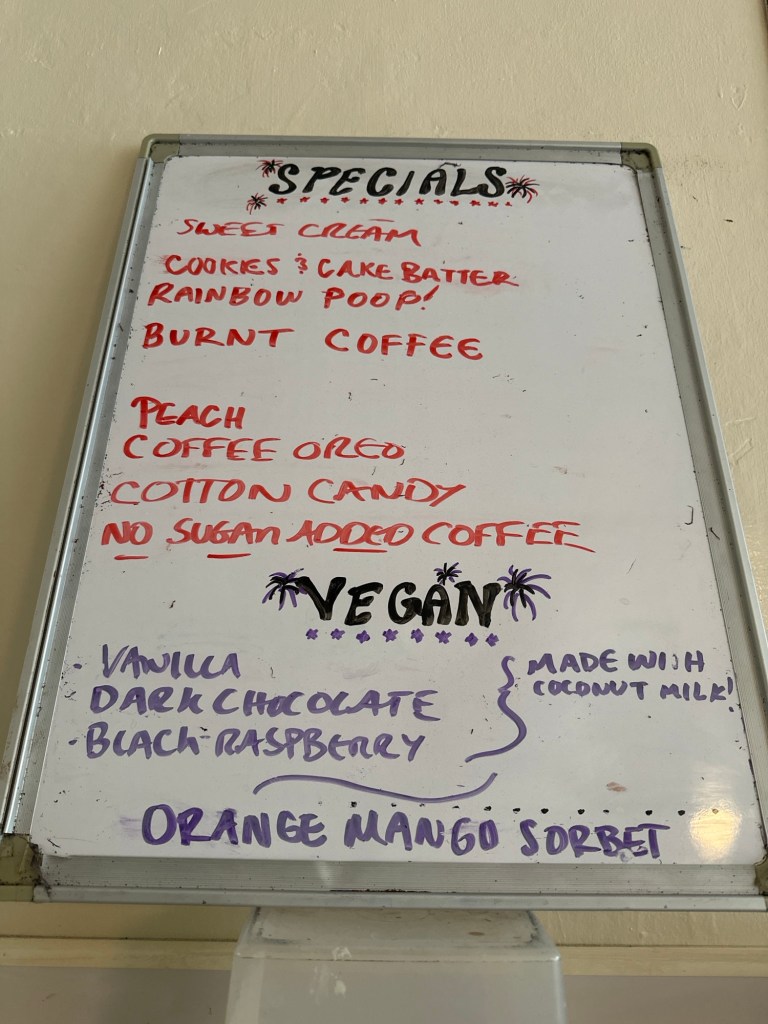 SPECIALS
SWEET CREAM
COOKIES & CAKE BATTER
RAINBOW POOP!
BURNT COFFEE
PEACH
COFFEE OREO
COTTON CANDY
NO SUGAR ADDED COFFEE
VEGAN
· VANILLA
DARK CHOCOLATE
· BLACK RASPBERRY
MADE WITH
COCONUT MILK!
ORANGE MANGO SORBET